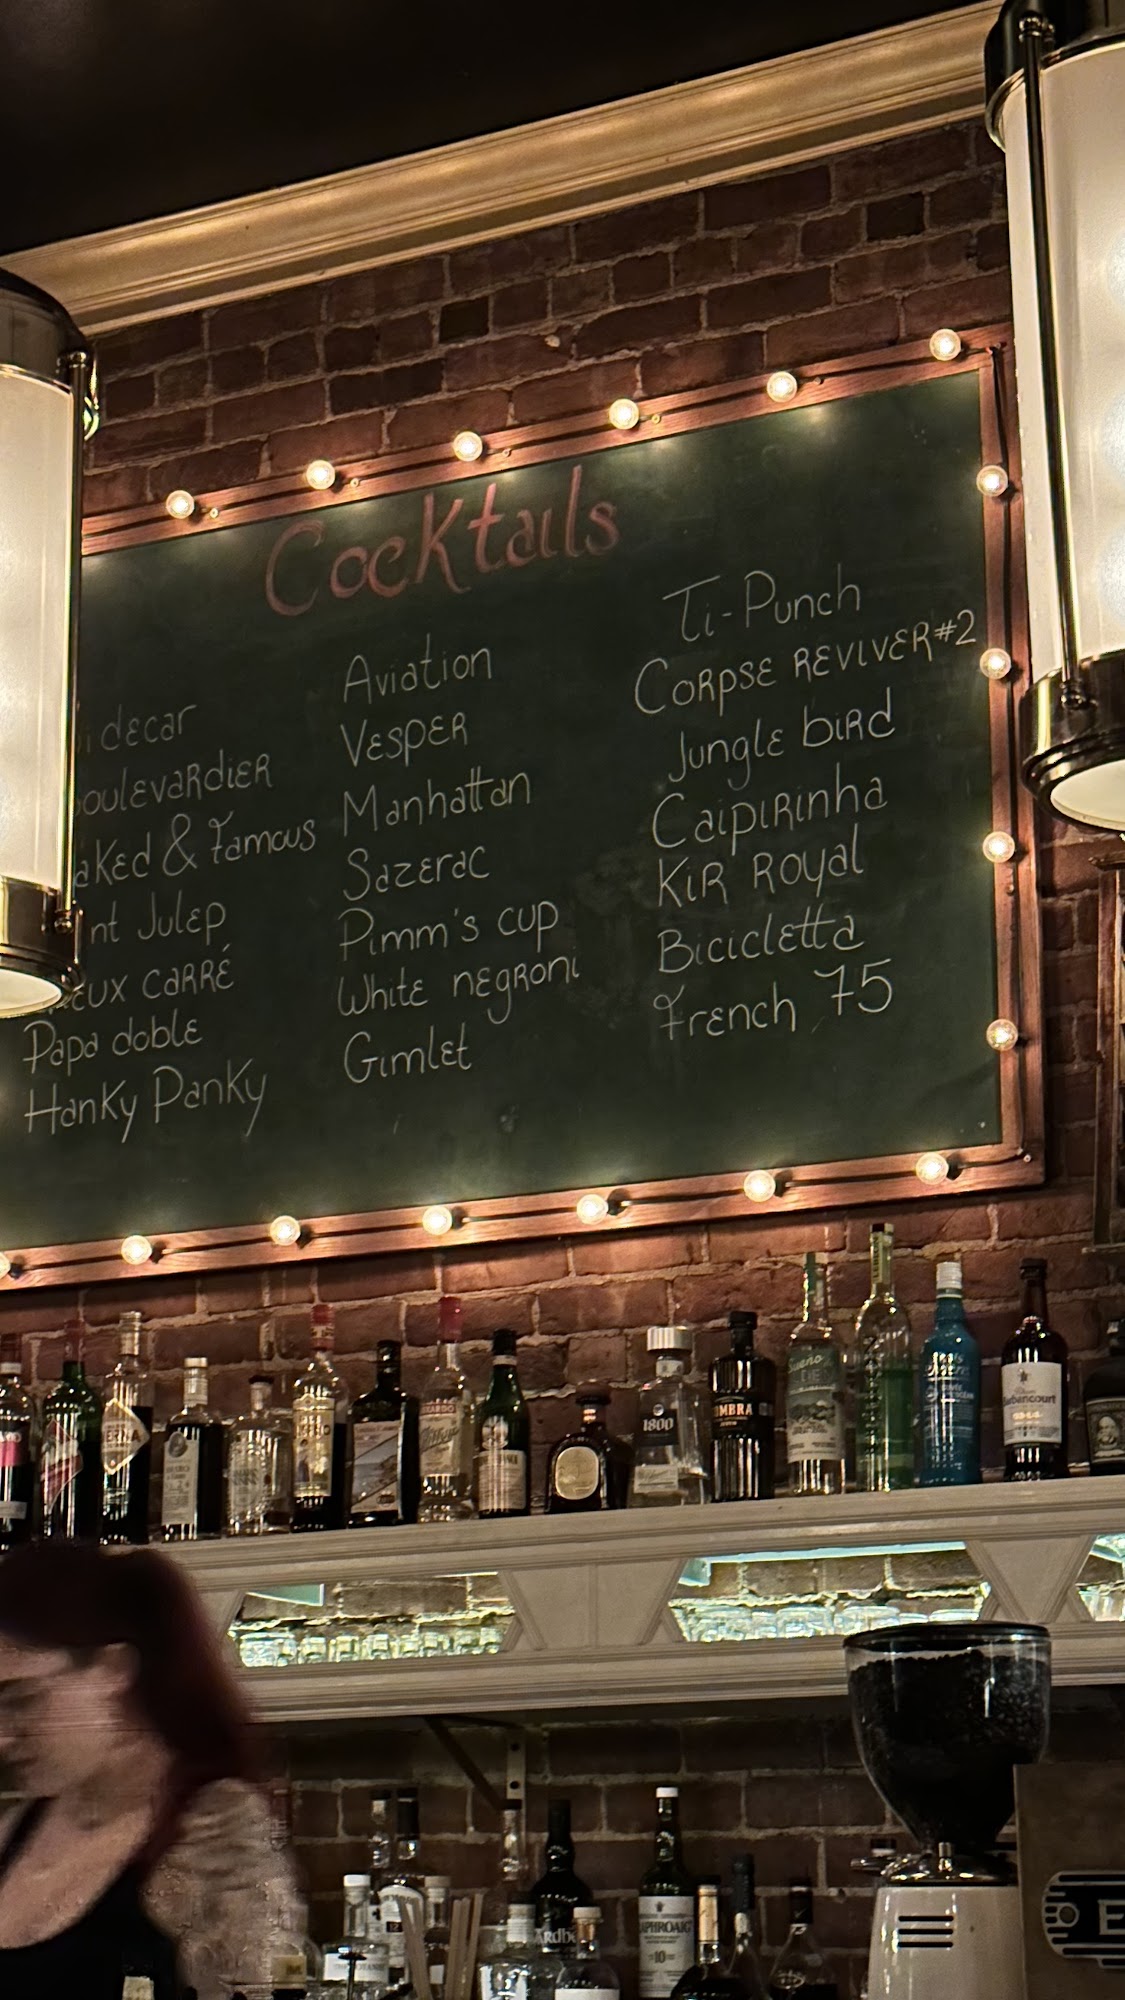 Cocktails
idecar
oulevardier
aked & Famous
nt Julep
eux carré
Papa doble
Hanky Panky
Aviation
Vesper
Manhattan
Sazerac
Pimm's cup
White negroni
Gimlet
Ti-Punch
Corpse Reviver #2
Jungle bird
Caipirinha
Kir Royal
Bicicletta
French 75
1800
Barbancourt
10